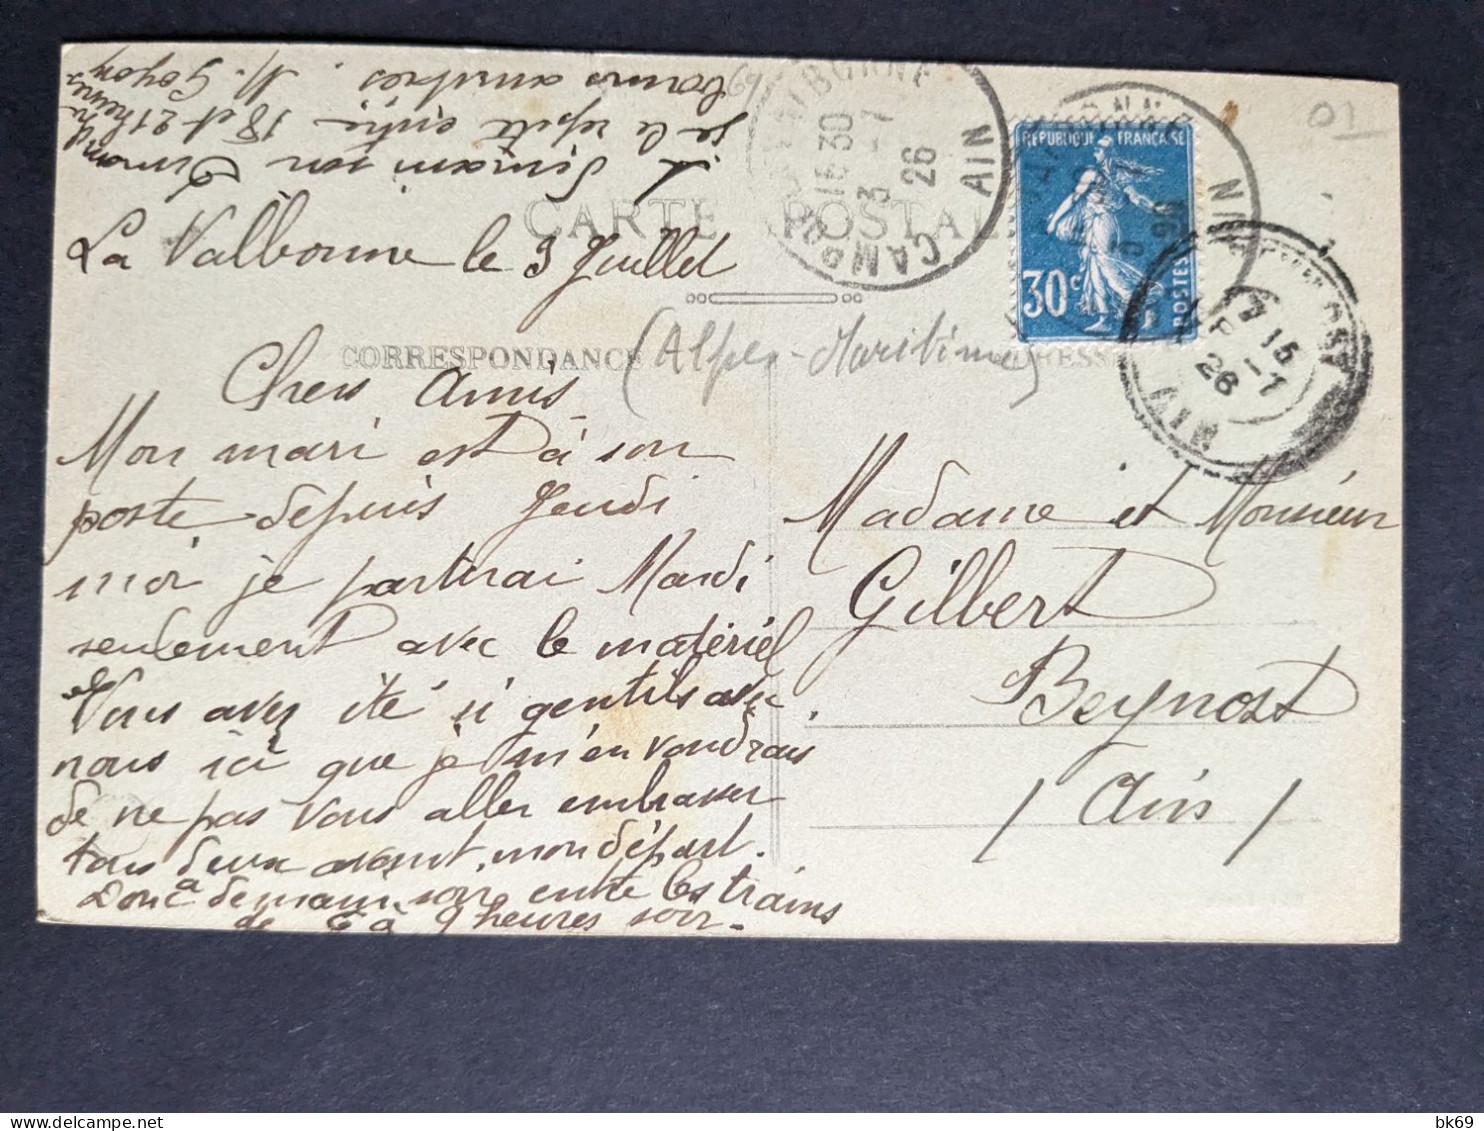 CARTE POSTALE
La Valbonne le 3 Juillet
CORRESPONDANCE
(Alpes-Maritimes)
Chers Amis
Mon mari est à son
poste depuis Jeudi
moi je partirai Mardi
seulement avec le matériel
Vous avez été si gentils avec
nous ici que je m'en voudrais
de ne pas vous aller embrasser
tous deux avant mon départ.
Donc à demain soir entre les trains
de 6 à 9 heures soir -
je le répète entre 18 et 21 heures
bonnes amitiés. M. Goyon
Madame et Monsieur
Gilbert
Beynost
/ Ain /
RÉPUBLIQUE FRANÇAISE
30c
POSTES
CAMP VALBONNE
15 30
3 -7
26
AIN
AIN
7 15
-7
26
AIN
01
bk69